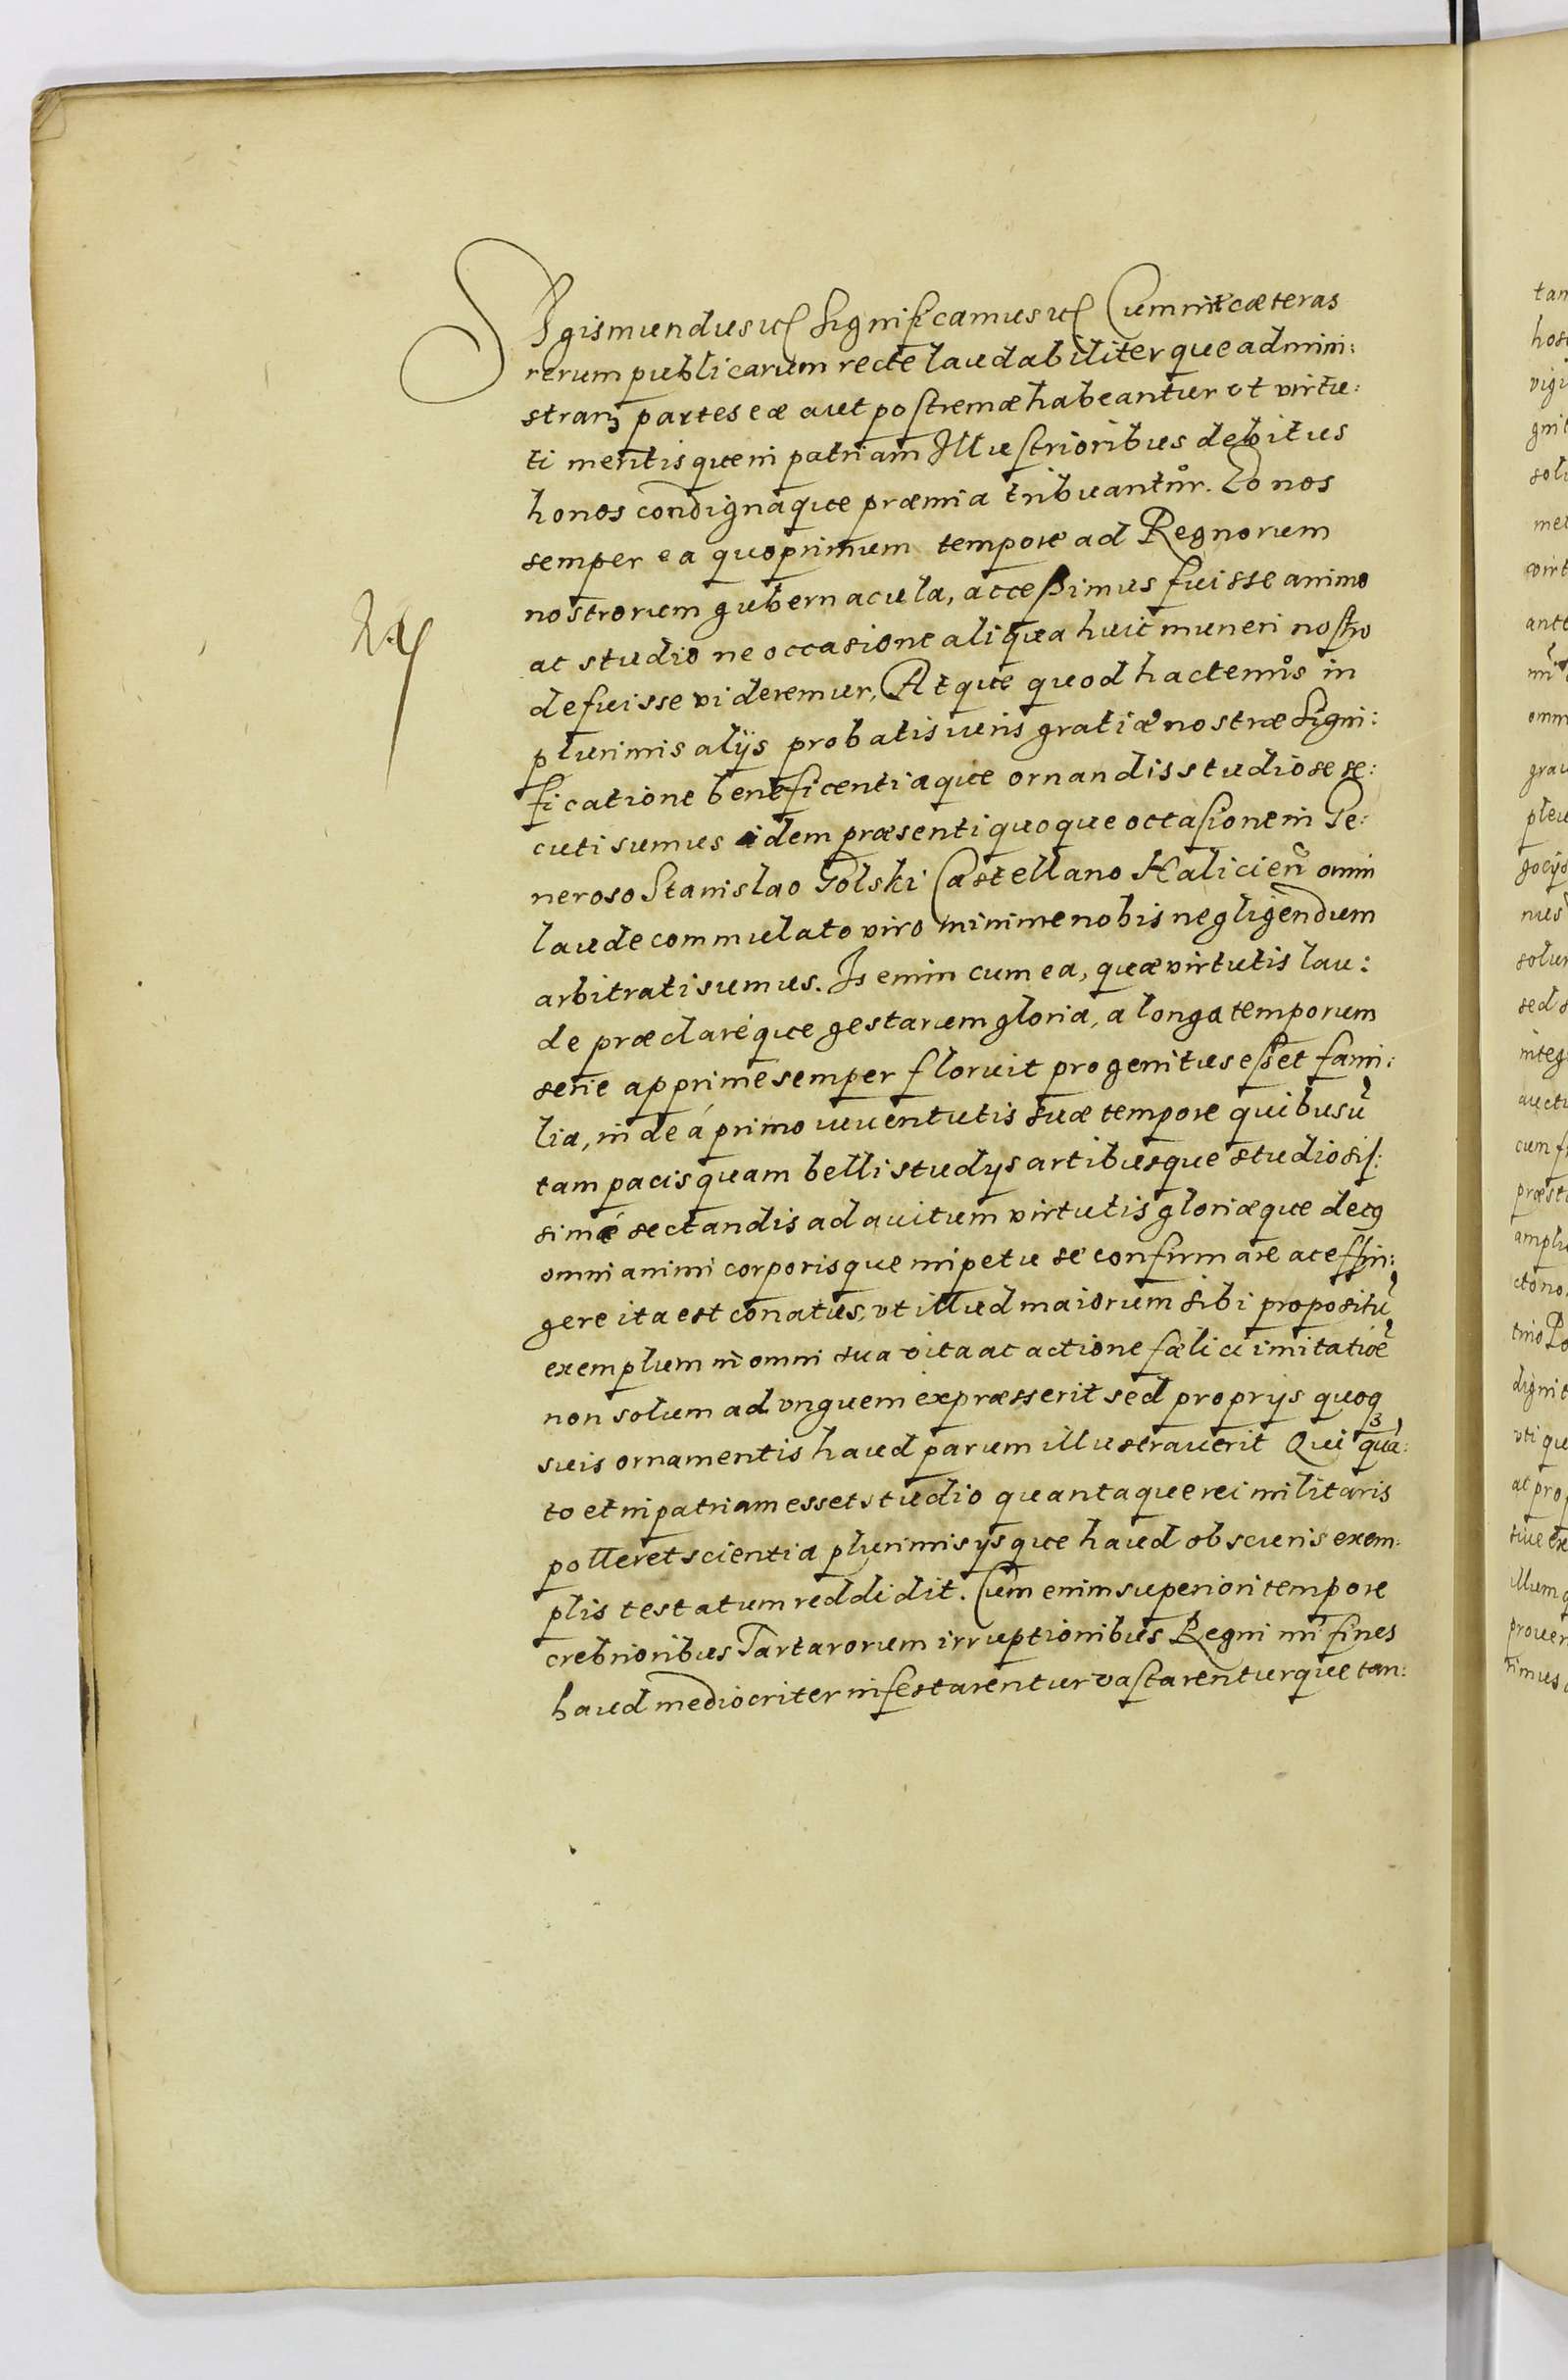 SIgismundus etc Significamus etc Cum inter cæteras
rerum publicarum recte laudabiliterque admini:
stran: partes eæ aut postremæ habeantur ut virtu:
ti meritisque in patriam Illustrioribus debitus
honos condignaque præmia tribuantur. Eo nos
semper ea quoprimum tempore ad Regnorum
nostrorum gubernacula, accessimus fuisse animo
ac studio ne occasione aliqua huic muneri nostro
defuisse videremur, Atque quod hactenus in
plurimis alijs probatis uiris gratiæ nostræ Signi:
ficatione beneficentiaque ornandis studiose se:
cuti sumus idem præsenti quoque occasione in Ge:
neroso Stanislao Golski Castellano Halicien̄ omni
laude commulato viro minime nobis negligendum
arbitrati sumus. Is enim cum ea, quæ virtutis lau:
de præclaréque gestarum gloria, a longa temporum
serie apprime semper floruit progenitus esset fami:
lia, inde á primo iuuentutis suæ tempore quibusū
tam pacis quam belli studys artibusque studiosis:
simé sectandis ad auitum virtutis gloriæque decus
omni animi corporisque impetu se confirmare ac effin:
gere ita est conatus, vt illud maiorum sibi propositū
exemplum in omni sua vita ac actione fælici imitatiōe
non solum ad vnguem expræsserit sed proprijs quoq
suis ornamentis haud parum illustrauerit Qui quā:
to et in patriam esset studio quantaque rei militaris
polleret scientia plurimis ysque haud obscuris exem:
plis testatum reddidit. Cum enim superiori tempore
crebrioribus Tartarorum irruptionibus Regni nr̄i fines
haud mediocriter infestarentur vastarenturque tan: